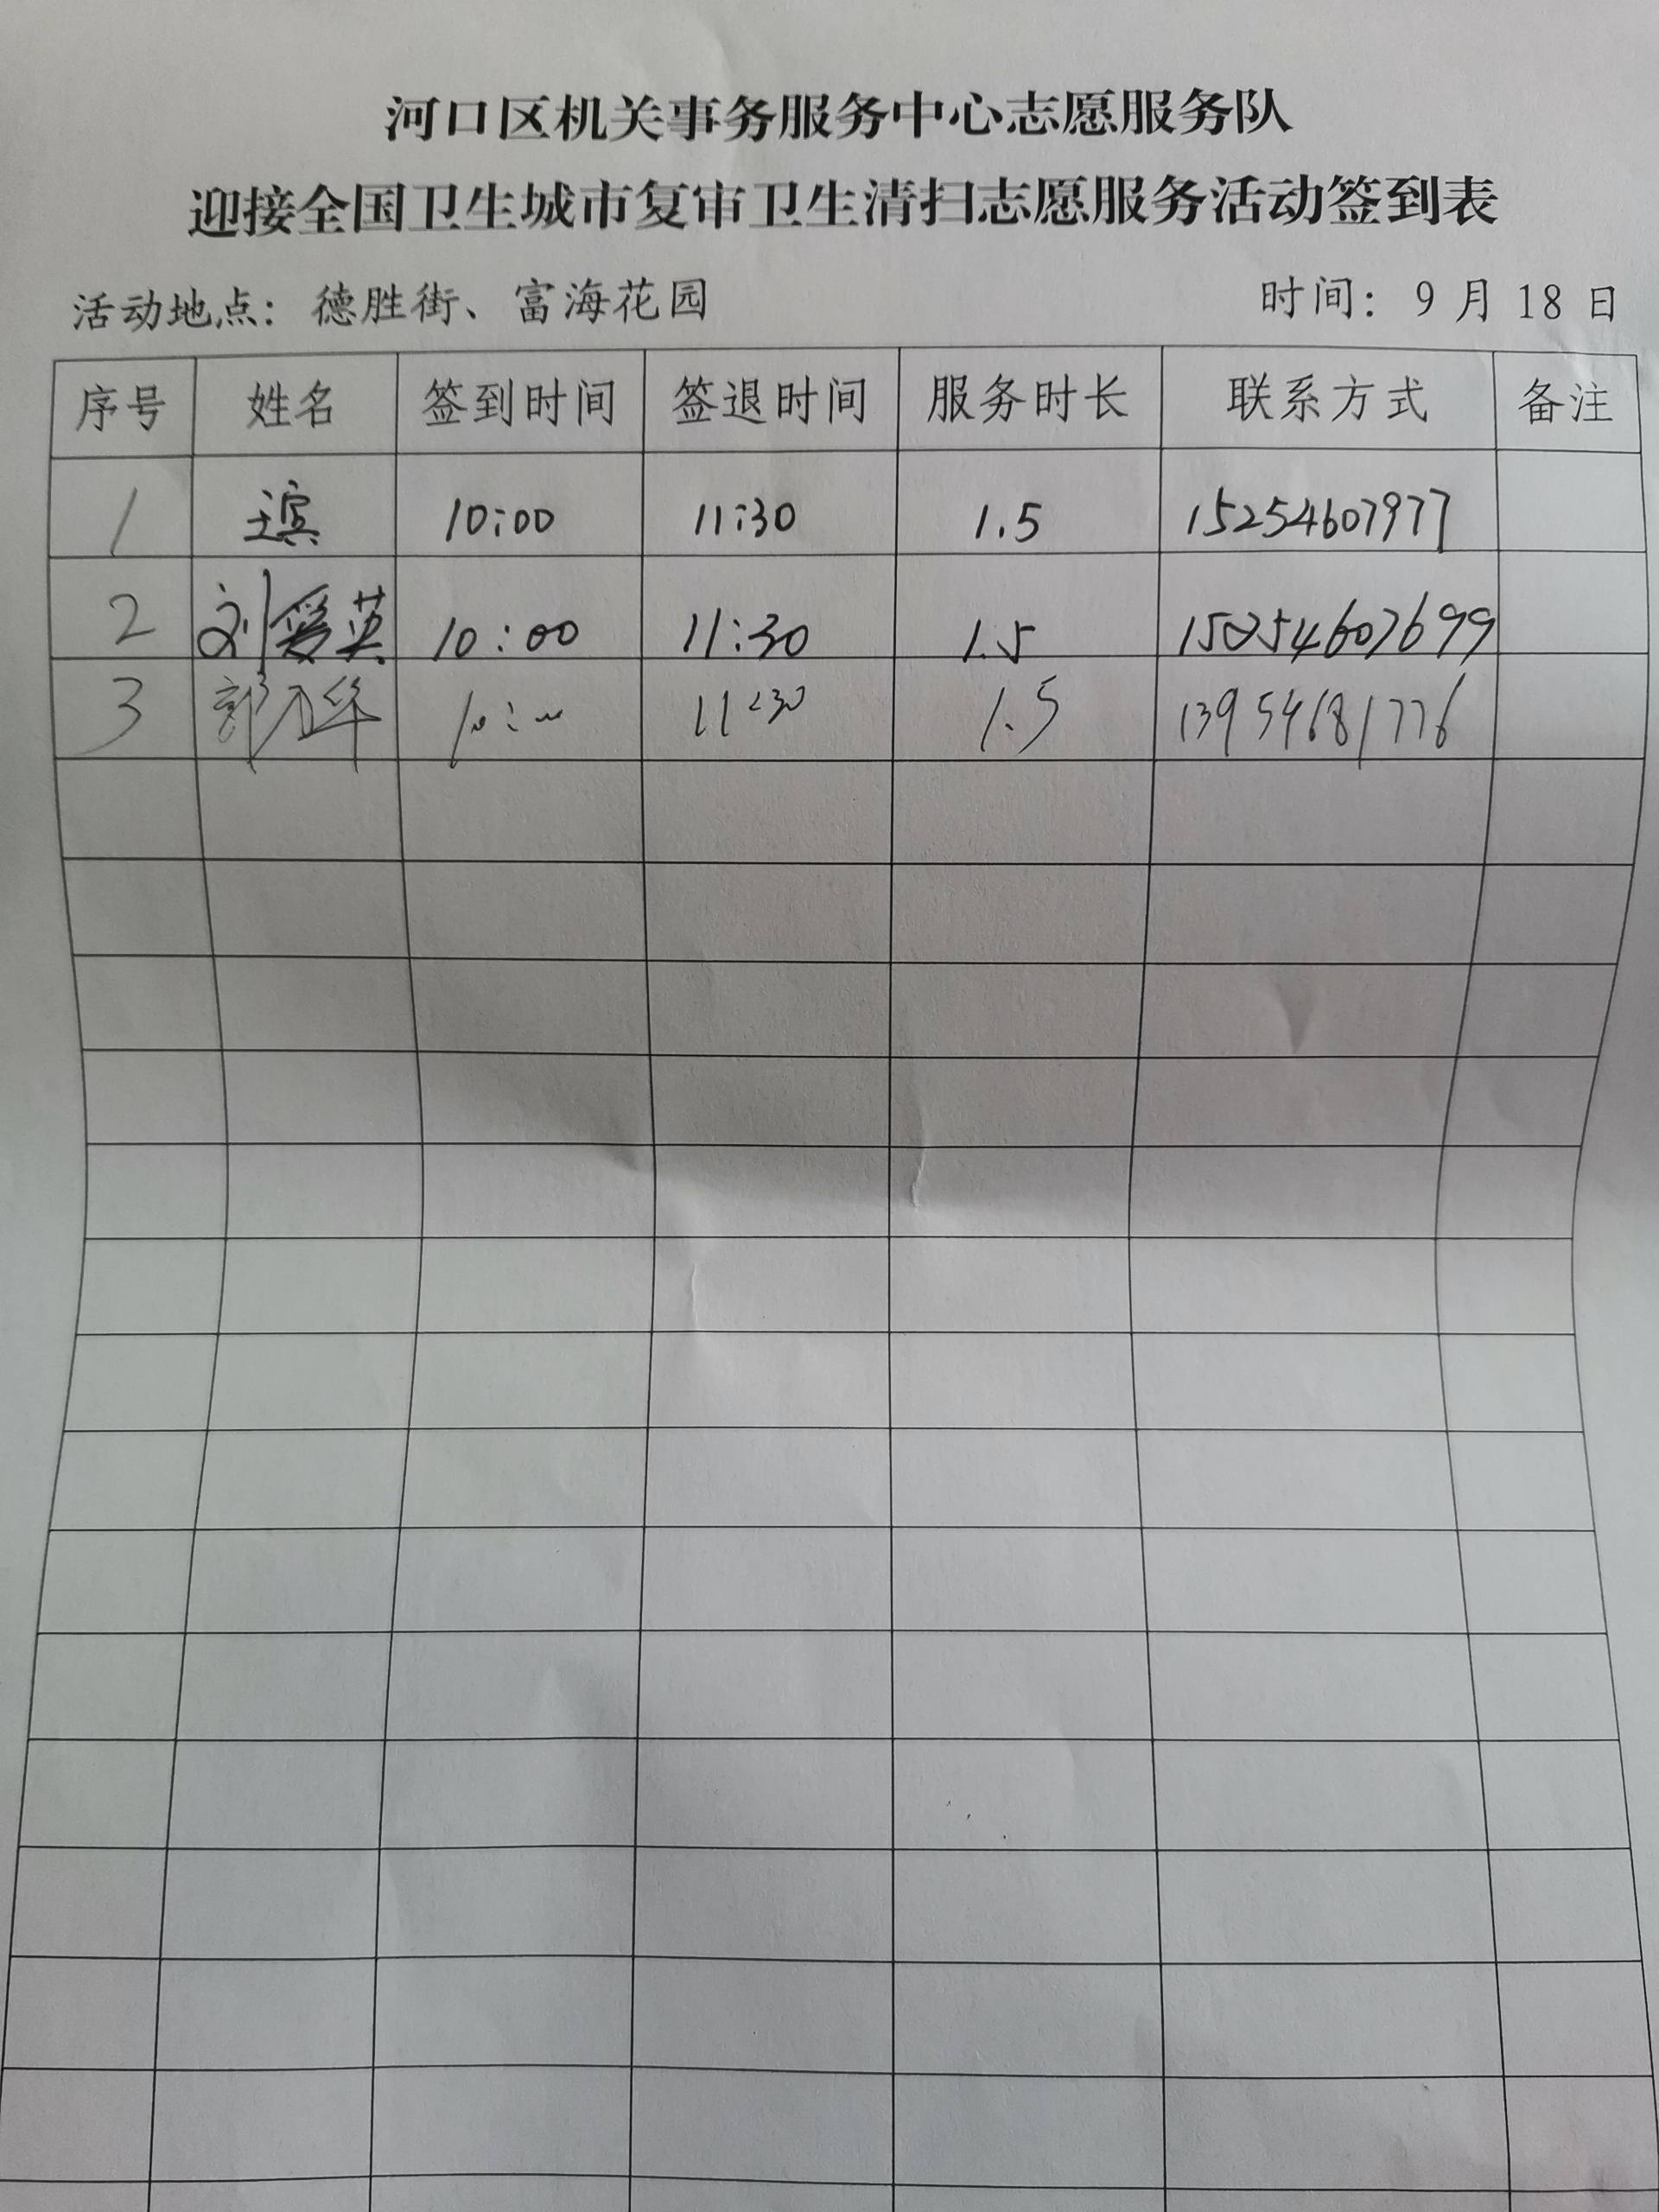 河口区机关事务服务中心志愿服务队
迎接全国卫生城市复审卫生清扫志愿服务活动签到表
活动地点：德胜街、富海花园 时间：9月18日
序号 姓名 签到时间 签退时间 服务时长 联系方式 备注
1 王宾 10:00 11:30 1.5 15254607977
2 刘爱英 10:00 11:30 1.5 15254607699
3 郭 华 10:00 11:30 1.5 13954681776